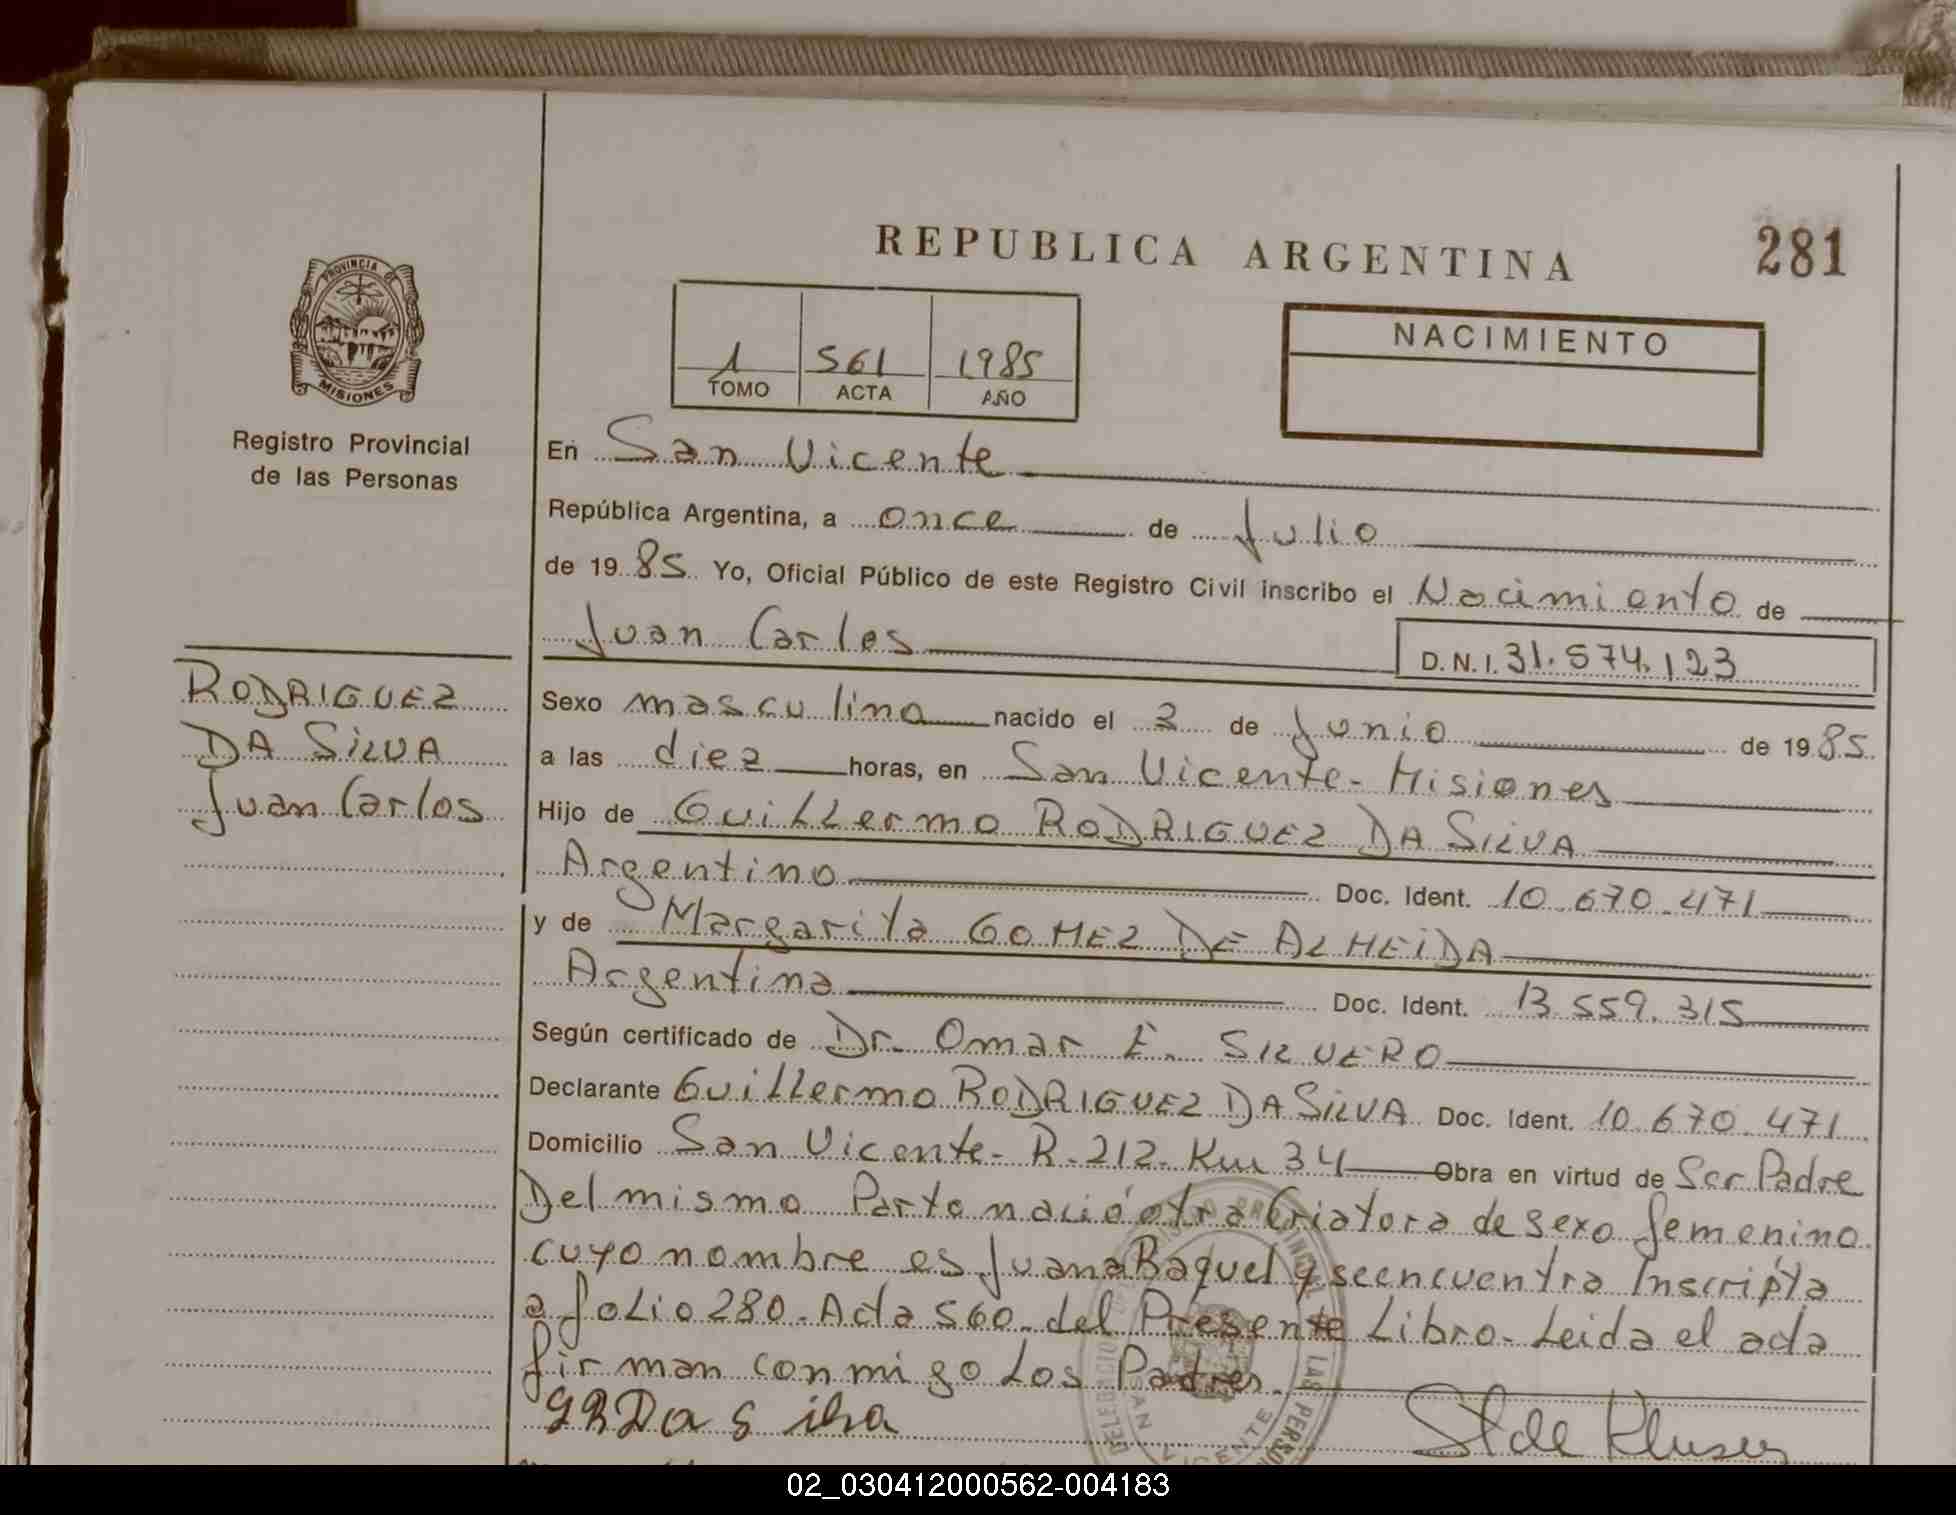 REPUBLICA ARGENTINA
281
PROVINCIA DE
MISIONES
Registro Provincial
de las Personas
1 561 1985
TOMO ACTA AÑO
NACIMIENTO
En San Vicente
República Argentina, a once de Julio
de 1985 Yo, Oficial Público de este Registro Civil inscribo el Nacimiento de
Juan Carlos
D.N.I. 31.574.123
RODRIGUEZ
DA SILVA
Juan Carlos
Sexo masculino nacido el 2 de Junio de 1985
a las diez horas, en San Vicente - Misiones
Hijo de Guillermo RODRIGUEZ DA SILVA
Argentino Doc. Ident. 10.670.471
y de Margarita GOMEZ DE ALMEIDA
Argentina Doc. Ident. 13.559.315
Según certificado de Dr. Omar E. SILVERO
Declarante Guillermo RODRIGUEZ DA SILVA Doc. Ident. 10.670.471
Domicilio San Vicente - R. 212 - Km 34 Obra en virtud de Ser Padre
Del mismo Parto nació otra Criatura de sexo femenino
cuyo nombre es Juana Raquel y se encuentra Inscripta
a folio 280 - Acta 560 - del Presente Libro - Leida el acta
firman conmigo Los Padres.
SAN VICENTE
LAS PERSO
02_030412000562-004183